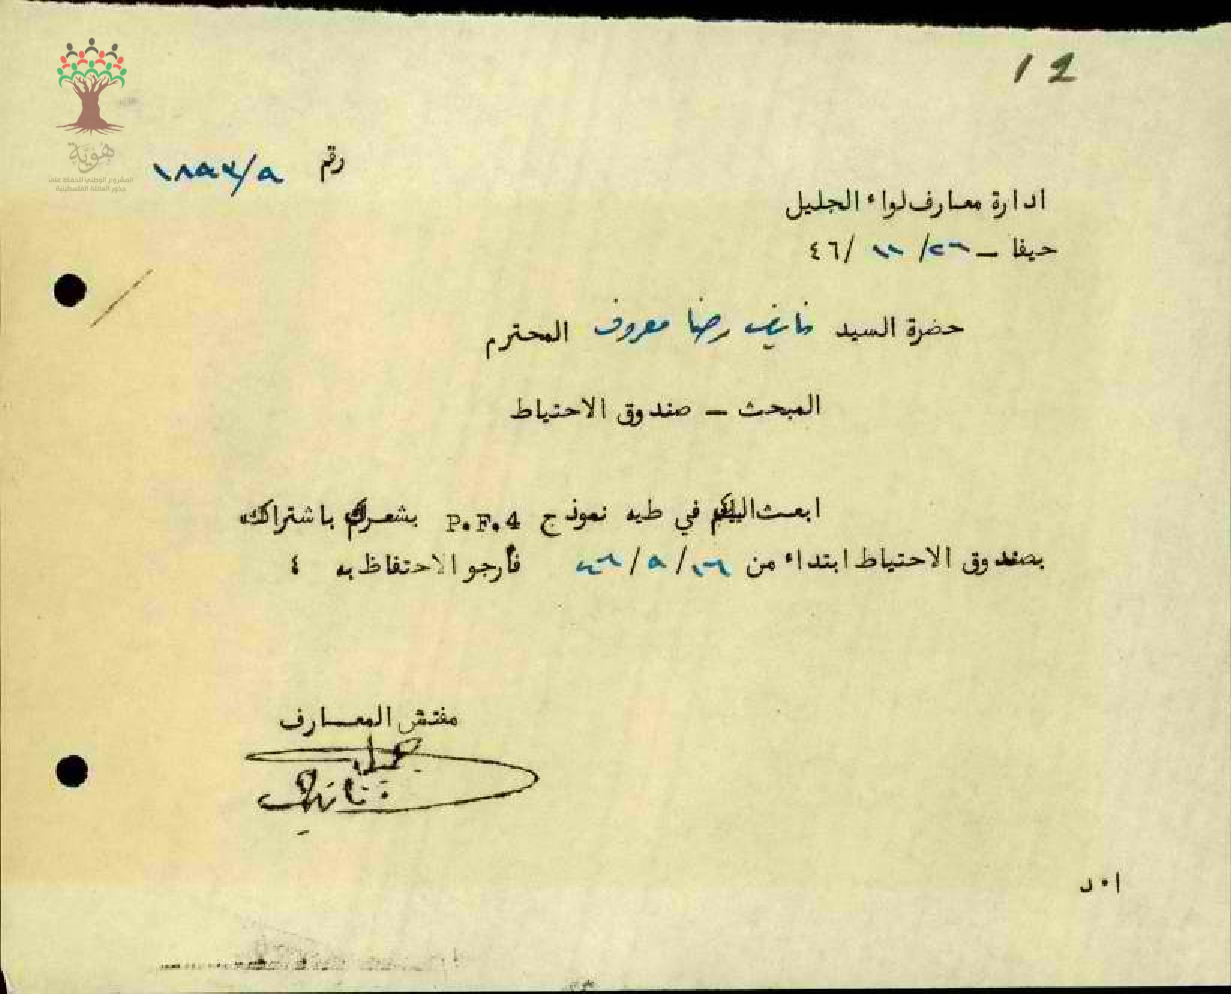 12
هوية
المشروع الوطني للحفاظ على
جذور العائلة الفلسطينية
رقم ١٨٩٣/٩
ادارة معارف لواء الجليل
حيفا – ٢٦/ ١١ /٤٦
حضرة السيد فايز رضا معروف المحترم
المبحث – صندوق الاحتياط
ابعث اليكم في طيه نموذج P.F.4 يشعرك باشتراكك
بصندوق الاحتياط ابتداء من ١٦/ ٩ / ٤٦ فأرجو الاحتفاظ به ٤
مفتش المعارف
جميل
ا٠د